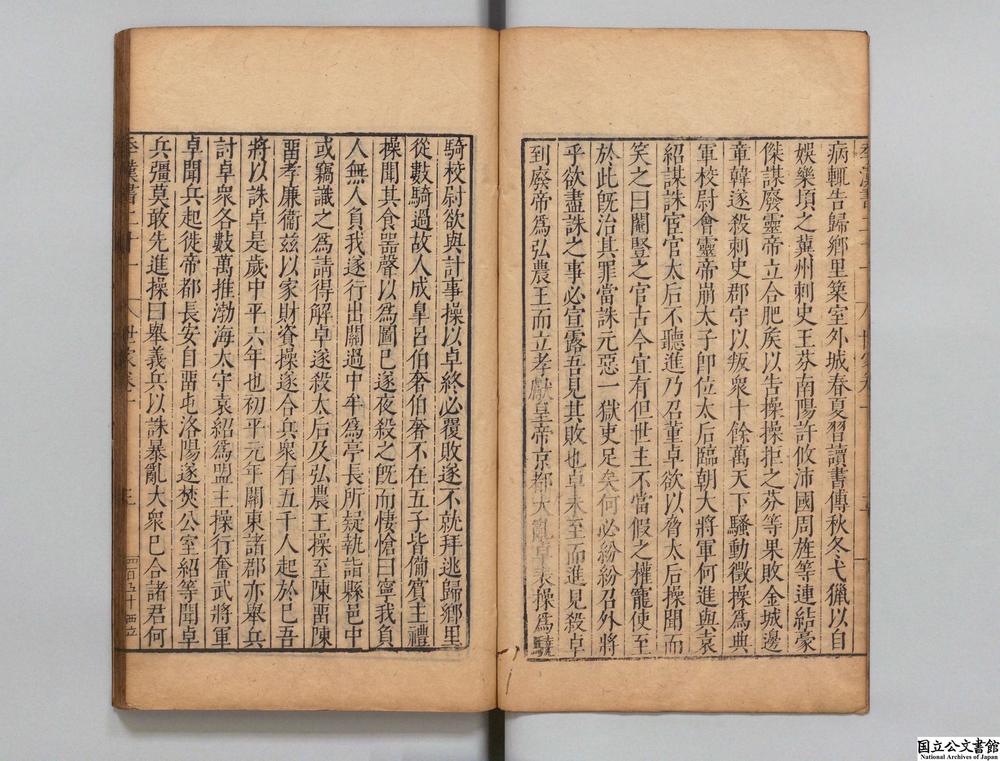 病輒告歸鄉里築室外城春夏習讀書傳秋冬弋獵以自
娛樂頃之冀州刺史王芬南陽許攸沛國周旌等連結豪
傑謀廢靈帝立合肥矦以告操操拒之芬等果敗金城邊
章韓遂殺刺史郡守以叛衆十餘萬天下騷動徵操爲典
軍校尉會靈帝崩太子卽位太后臨朝大將軍何進與袁
紹謀誅宦官太后不聽進乃召董卓欲以脅太后操聞而
笑之曰閹豎之官古今宜有但世主不當假之權寵使至
於此旣治其罪當誅元惡一獄吏足矣何必紛紛召外將
乎欲盡誅之事必宣露吾見其敗也卓未至而進見殺卓
到廢帝爲弘農王而立孝獻皇帝京都大亂卓表操爲驍
騎校尉欲與計事操以卓終必覆敗遂不就拜逃歸鄉里
從數騎過故人成皐呂伯奢伯奢不在五子皆備賓主禮
操聞其食器聲以爲圖巳遂夜殺之旣而悽愴曰寧我負
人無人負我遂行出關過中牟爲亭長所疑執詣縣邑中
或竊識之爲請得解卓遂殺太后及弘農王操至陳畱陳
畱孝廉衞兹以家財資操遂合兵衆有五千人起於巳吾
將以誅卓是歲中平六年也初平元年關東諸郡亦舉兵
討卓衆各數萬推渤海太守袁紹爲盟主操行奮武將軍
卓聞兵起徙帝都長安自畱屯洛陽遂焚公室紹等聞卓
兵彊莫敢先進操曰舉義兵以誅暴亂大衆巳合諸君何
季漢書二十一 世家卷一 三 四百五十 西立